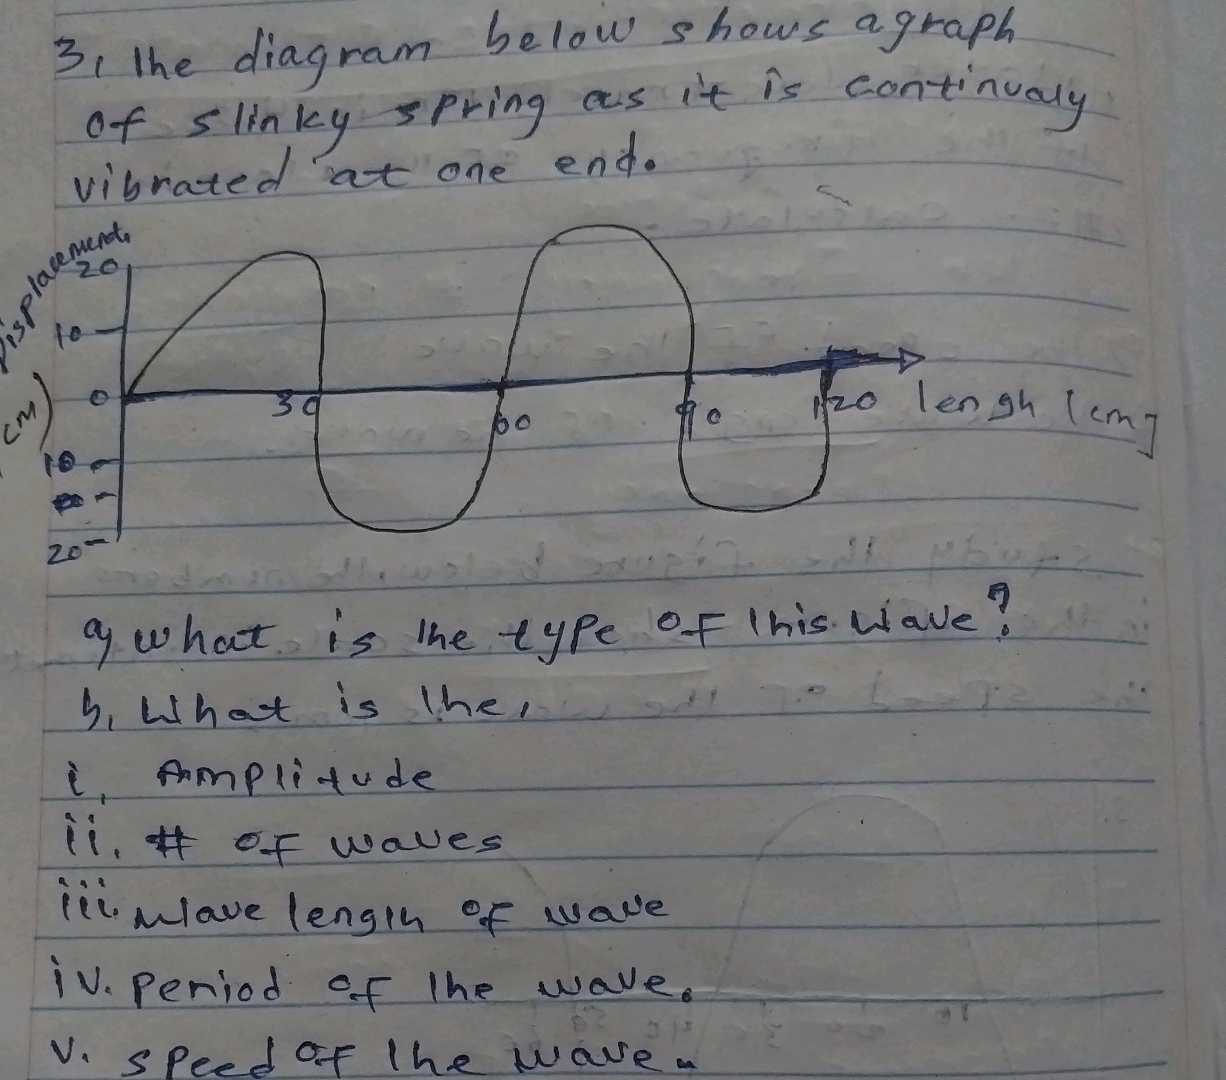 3, The diagram below shows a graph
of slinky spring as it is continualy
vibrated at one end.
Displacement
(cm)
20
10
0
10
20
30
60
90
120
lengh (cm)
a, what is the type of this wave?
b, What is the,
i, Amplitude
ii. # of waves
iii. wave length of wave
iv. period of the wave.
v. speed of the wave.